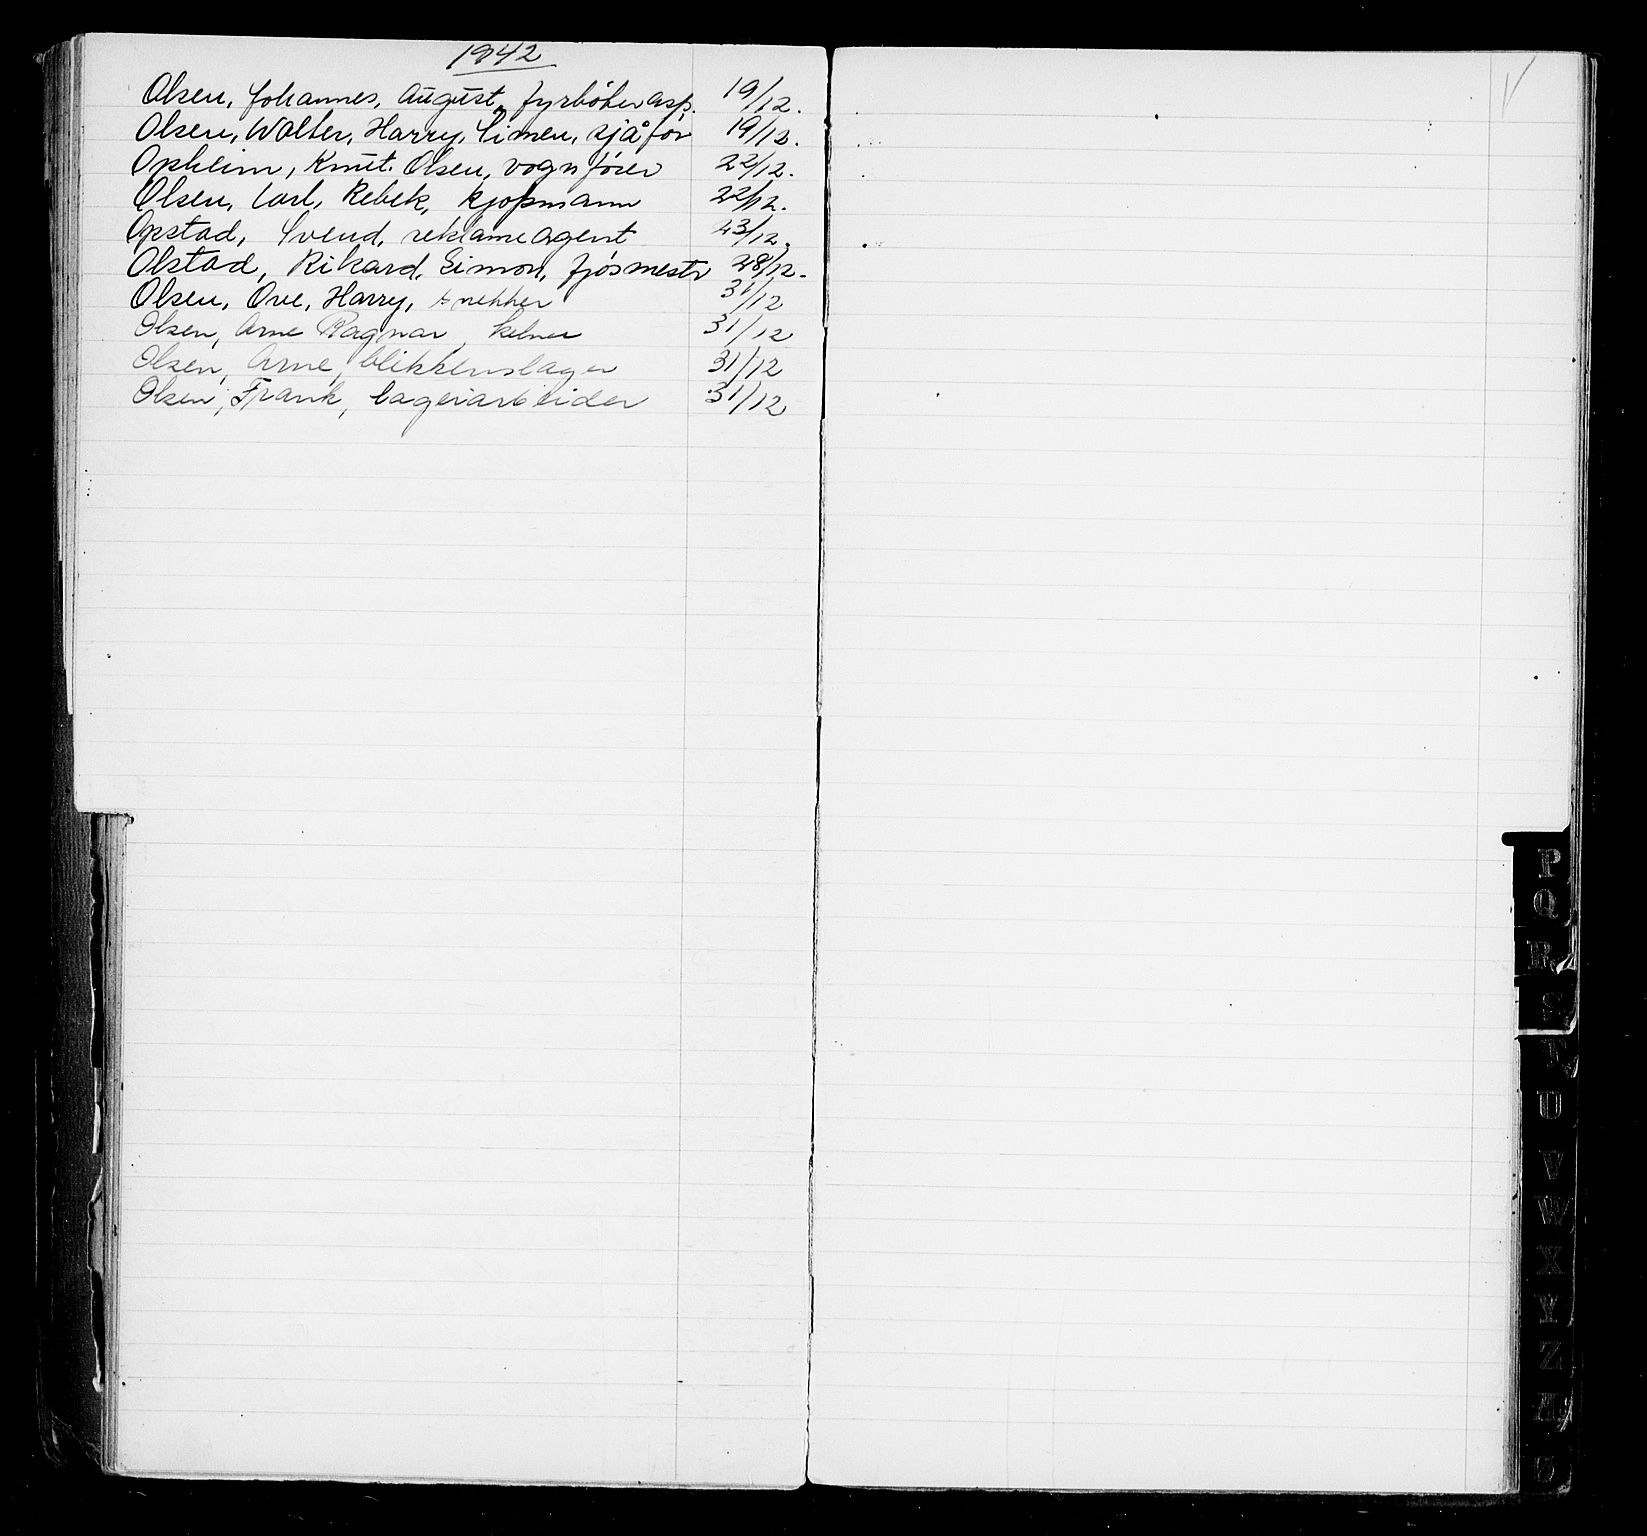 1942
Olsen, Johannes, August, fyrbøter asp. 19/12.
Olsen, Walter, Harry, Simen, sjåfør 19/12.
Opheim, Knut. Olsen, vognfører 22/12.
Olsen, Carl, Rebek, kjøpmann 22/12.
Opstad, Svend, reklameagent 23/12.
Olstad, Rikard, Simon, fjøsmestr 28/12.
Olsen, Ove, Harry, snekker 31/12
Olsen, Arne Ragnar, kelner 31/12
Olsen, Arne, blikkenslager 31/12
Olsen, Frank, lagerarbeider 31/12
P
Q
R
S
T
U
V
W
X
Y
Z